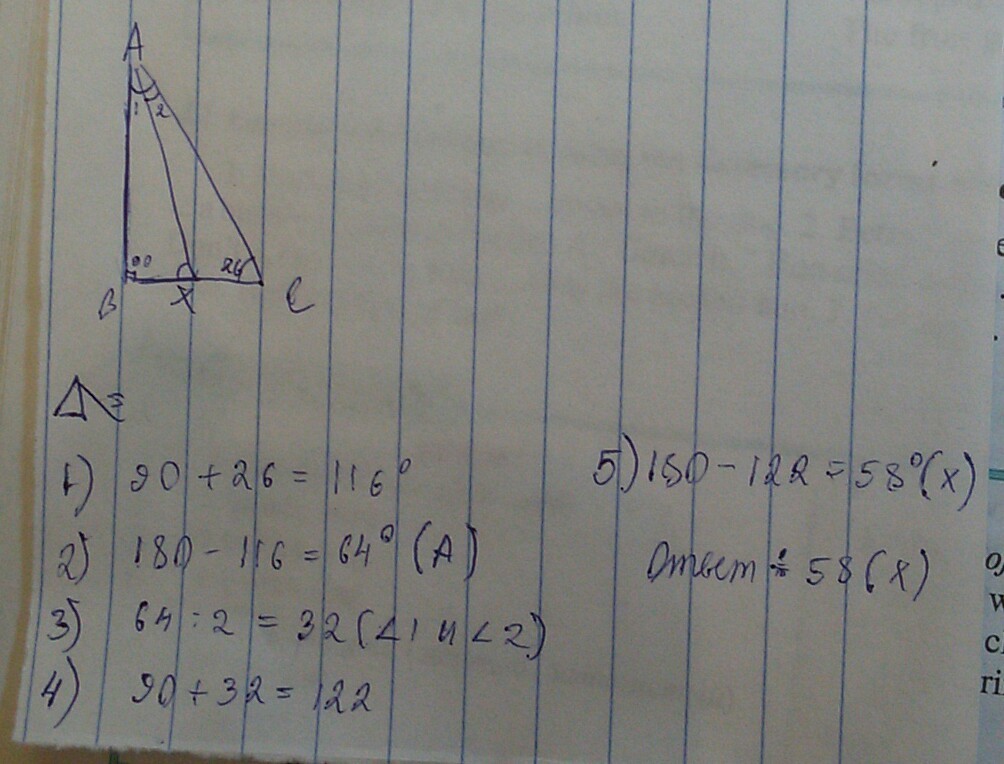 A
1 2
90 26
B X C
1) 90 + 26 = 116°
2) 180 - 116 = 64° (A)
3) 64 : 2 = 32 (∠1 и ∠2)
4) 90 + 32 = 122
5) 180 - 122 = 58° (x)
Ответ : 58 (x)